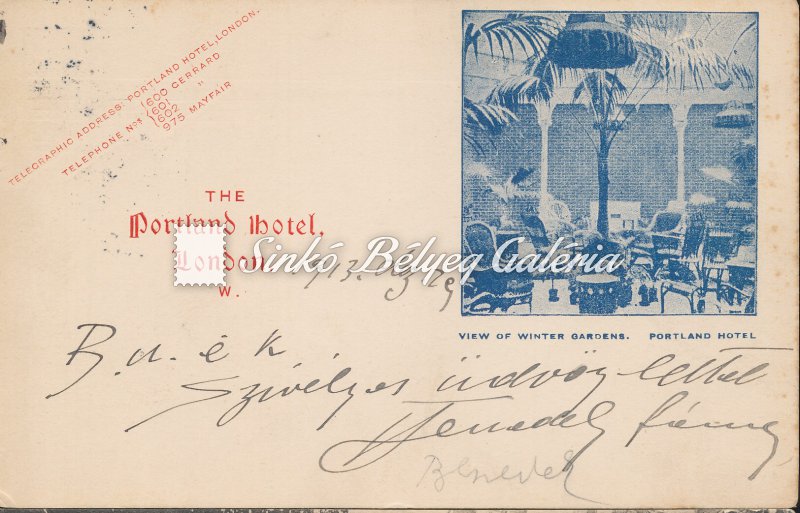 TELEGRAPHIC ADDRESS: PORTLAND HOTEL, LONDON.
TELEPHONE Nos 1600 GERRARD
1601 "
1602 "
975 MAYFAIR
THE
Portland Hotel,
London
W.
Sinkó Bélyeg Galéria
913.
VIEW OF WINTER GARDENS. PORTLAND HOTEL
B. u. é k
Szívélyes üdvözlettel
Benedek
Benedek